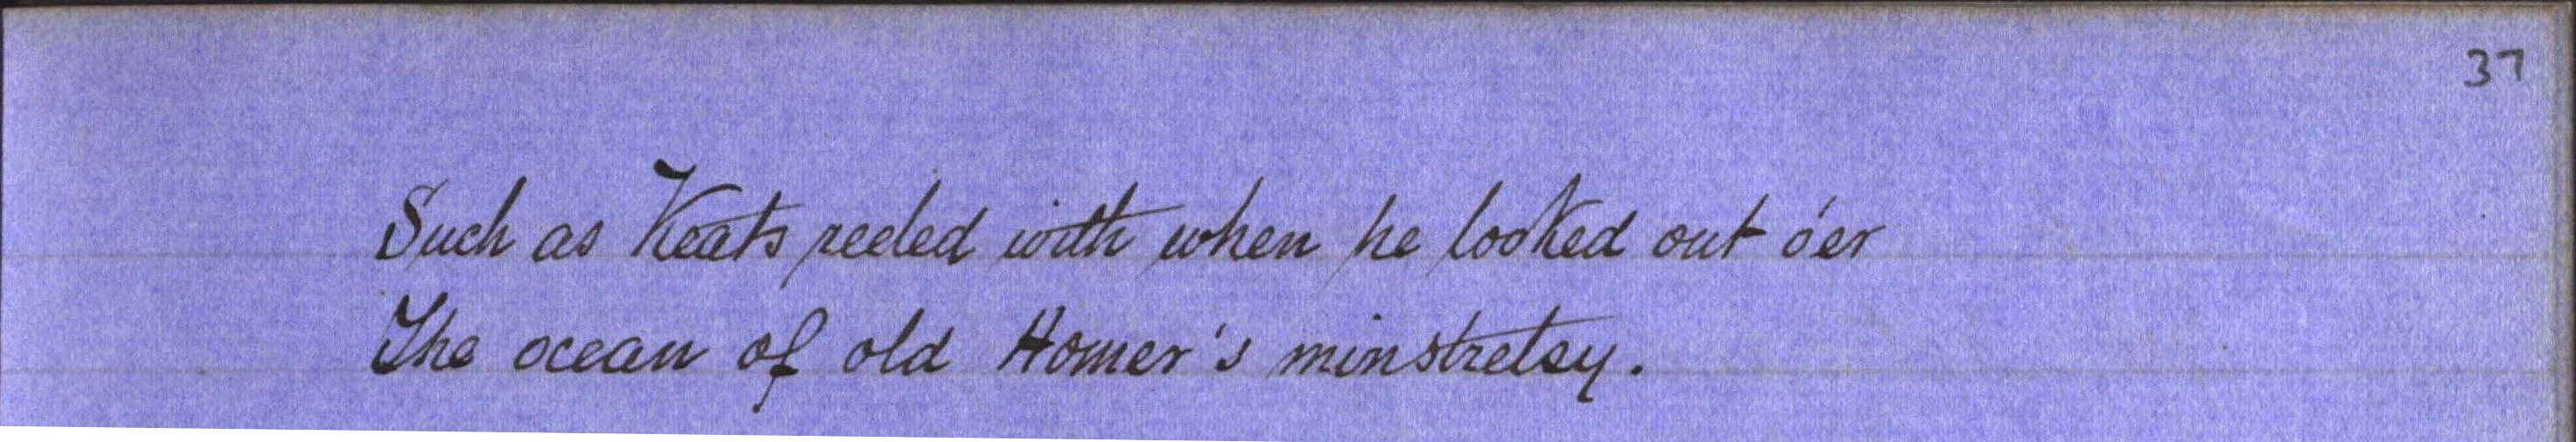 37
Such as Keats reeled with when he looked out o'er
The ocean of old Homer's minstrelsy.